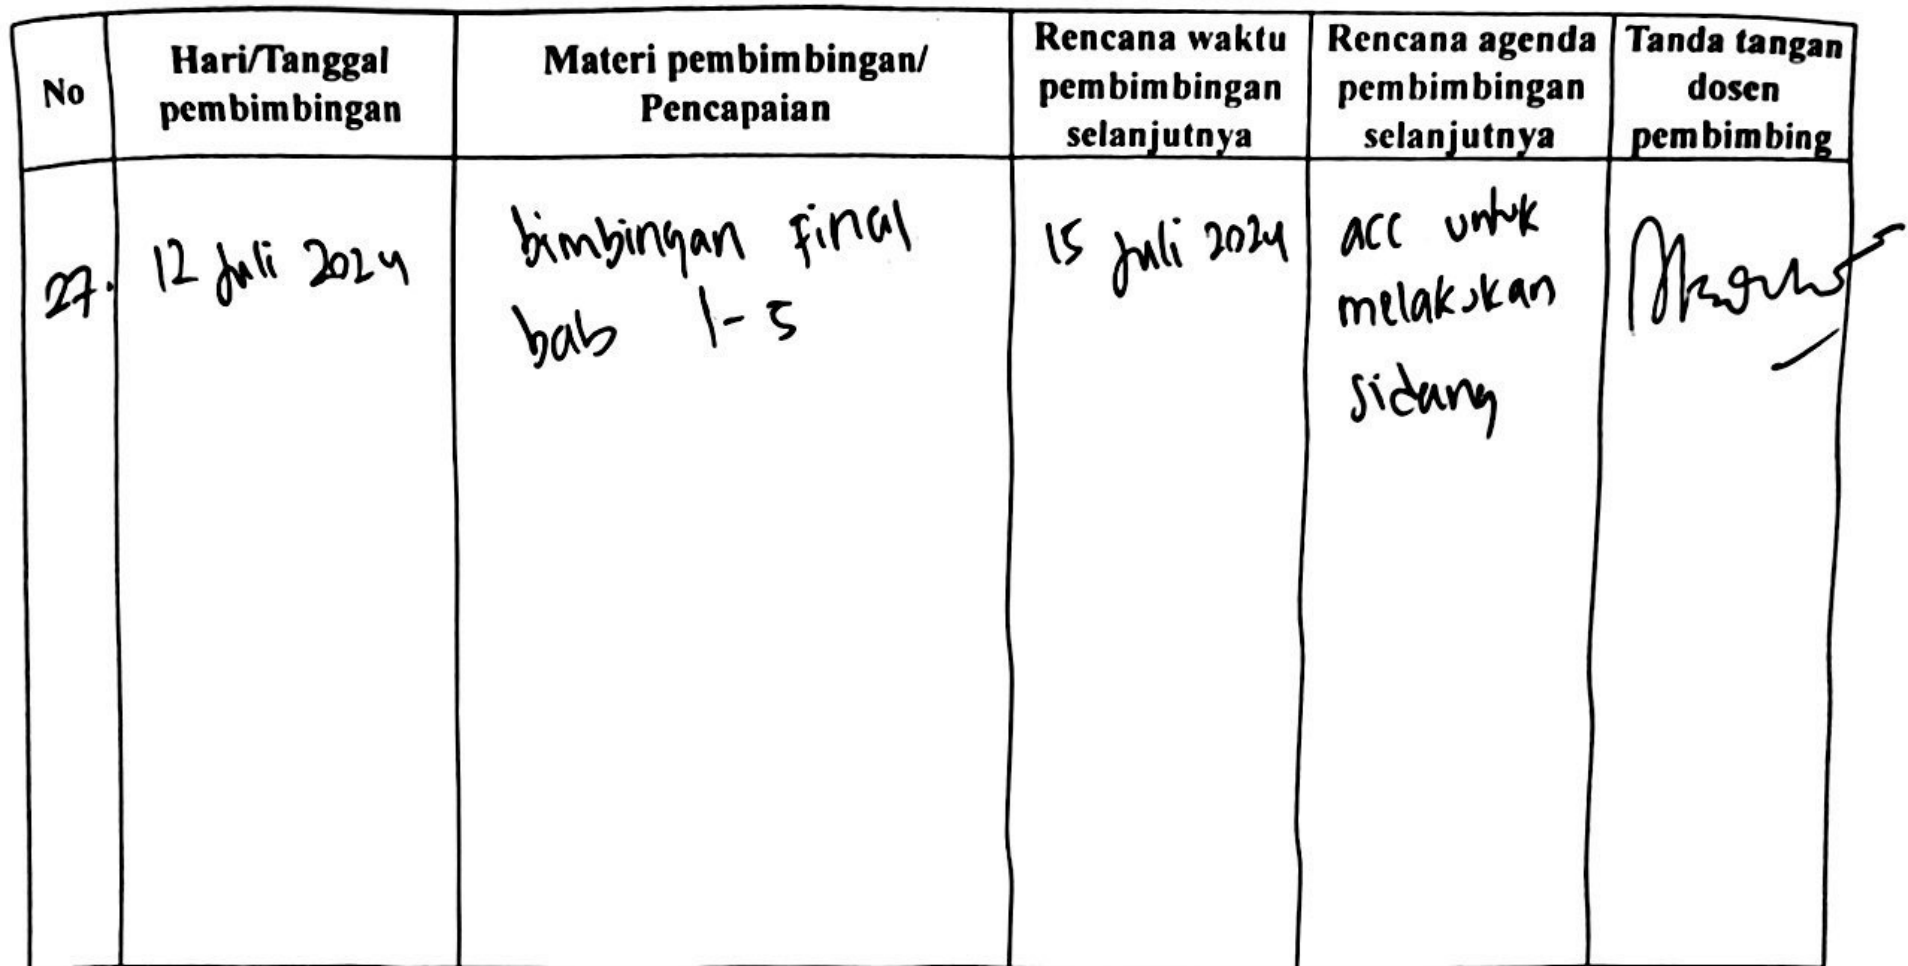 No
Hari/Tanggal
pembimbingan
Materi pembimbingan/
Pencapaian
Rencana waktu
pembimbingan
selanjutnya
Rencana agenda
pembimbingan
selanjutnya
Tanda tangan
dosen
pembimbing
27.
12 Juli 2024
bimbingan final
bab 1-5
15 Juli 2024
acc untuk
melakukan
sidang